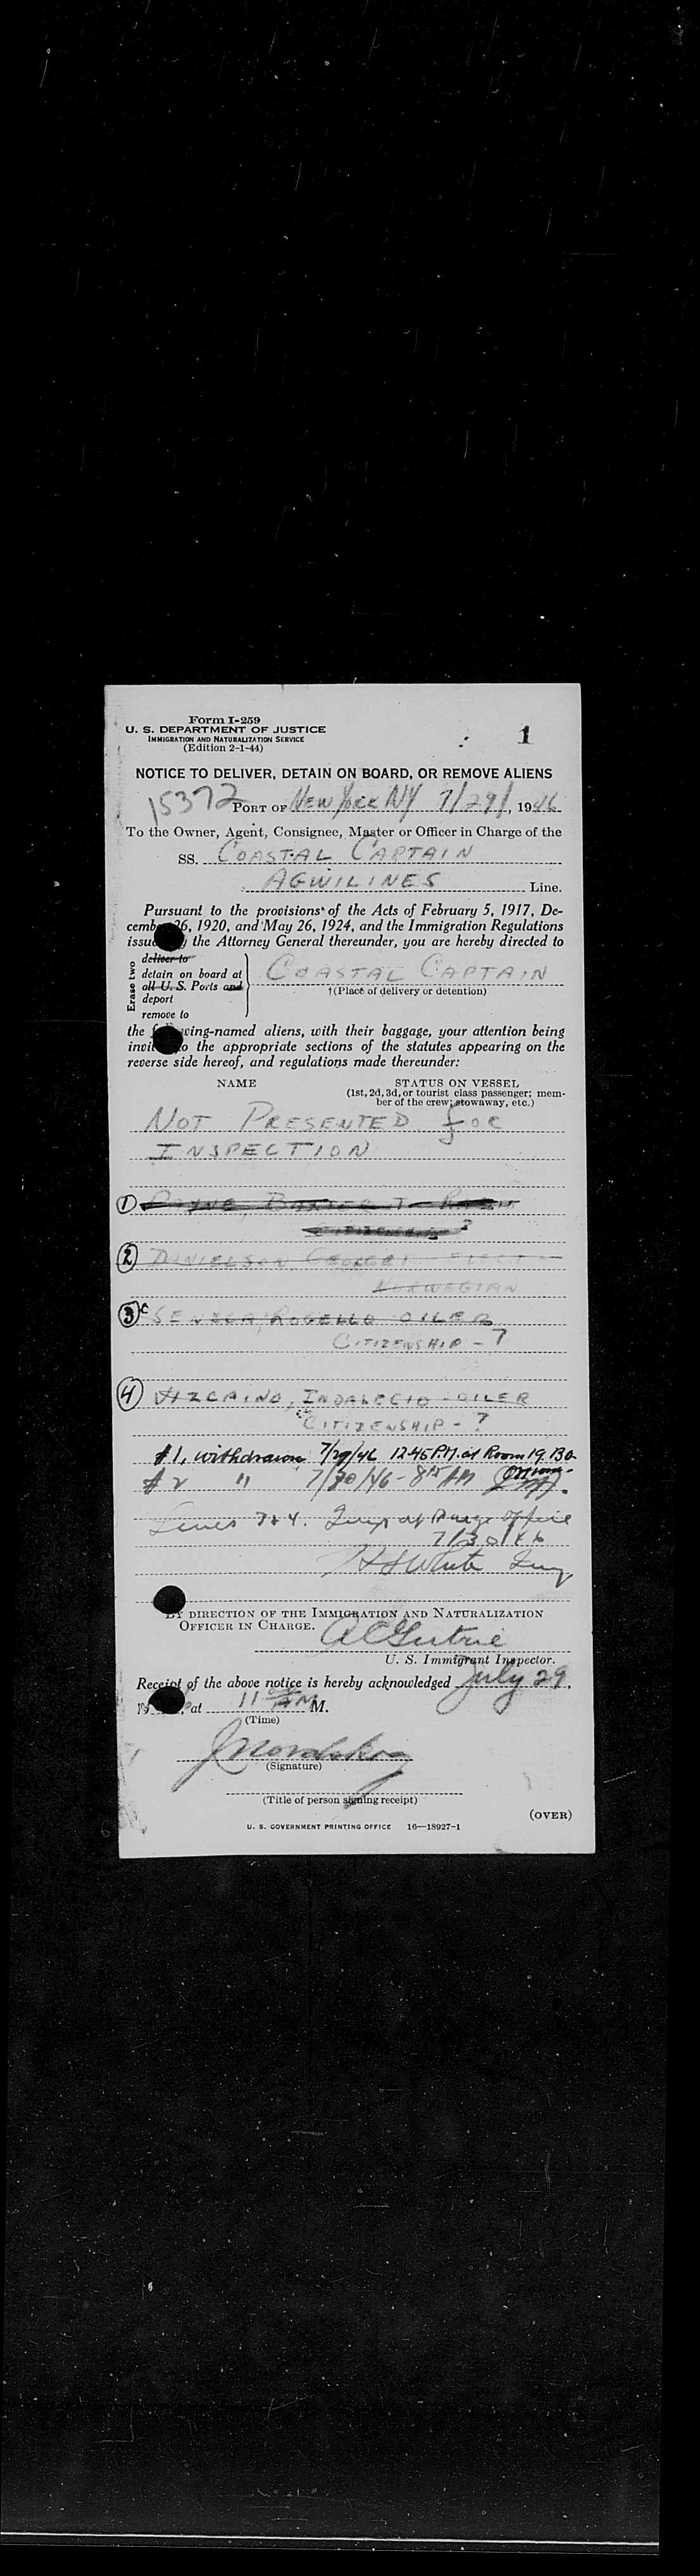 Form I-259
U. S. DEPARTMENT OF JUSTICE
IMMIGRATION AND NATURALIZATION SERVICE
(Edition 2-1-44)
1
NOTICE TO DELIVER, DETAIN ON BOARD, OR REMOVE ALIENS
15372
PORT OF New York NY 7/29/, 1946
To the Owner, Agent, Consignee, Master or Officer in Charge of the
SS. COASTAL CAPTAIN
AGWILINES Line.
Pursuant to the provisions of the Acts of February 5, 1917, De-
cemb 26, 1920, and May 26, 1924, and the Immigration Regulations
issu the Attorney General thereunder, you are hereby directed to
Erase two
deliver to
detain on board at
all U. S. Ports and
deport
remove to
COASTAL CAPTAIN
†(Place of delivery or detention)
the wing-named aliens, with their baggage, your attention being
invi o the appropriate sections of the statutes appearing on the
reverse side hereof, and regulations made thereunder:
NAME
STATUS ON VESSEL
(1st, 2d, 3d, or tourist class passenger; mem-
ber of the crew; stowaway, etc.)
NOT PRESENTED for
INSPECTION
1
2 DANIELSON GEORGE ELECT
NORWEGIAN
3 SENECA, ROGELLO OILER
CITIZENSHIP - ?
4 VIZCAINO, INDALECIO - OILER
CITIZENSHIP - ?
#1, withdrawn 7/29/46 12:45 P.M. at Room 19. B.O.
#2 " 7/30/46 - 8 AM
Lines 3 & 4. Insp at Barge office
7/30/46
White Insp
BY DIRECTION OF THE IMMIGRATION AND NATURALIZATION
OFFICER IN CHARGE.
A C Gutrie
U. S. Immigrant Inspector.
Receipt of the above notice is hereby acknowledged July 29,
19 , at 11 AM M.
(Time)
(Signature)
(Title of person signing receipt)
(OVER)
U. S. GOVERNMENT PRINTING OFFICE 16—18927-1